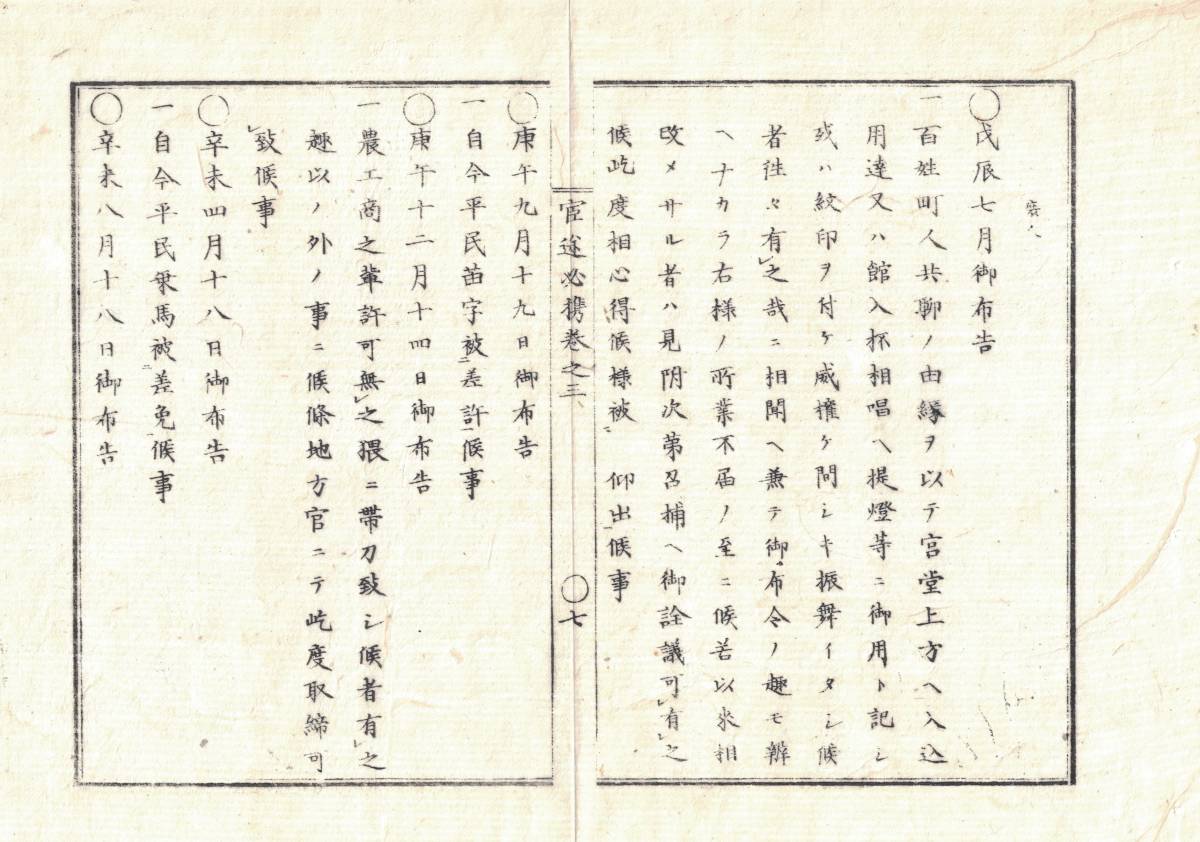 ○戊辰七月御布告
一百姓町人共聊ノ由縁ヲ以テ宮堂上方ヘ入込
用達又ハ館入抔相唱ヘ提燈等ニ御用ト記シ
或ハ紋印ヲ付ケ威権ケ間シキ振舞イタシ候
者往々有レ之哉ニ相聞ヘ兼テ御布令ノ趣モ辨
ヘナカラ右様ノ所業不届ノ至ニ候若以来相
改メサル者ハ見附次第召捕ヘ御詮議可レ有レ之
候屹度相心得候様被二 仰出一候事
宦途必携巻之三
○七
○庚午九月十九日御布告
一自今平民苗字被二差許一候事
○庚午十二月十四日御布告
一農工商之輩許可無レ之猥ニ帯刀致シ候者有レ之
趣以ノ外ノ事ニ候條地方官ニテ屹度取締可
レ致候事
○辛未四月十八日御布告
一自今平民乗馬被二差免一候事
○辛未八月十八日御布告